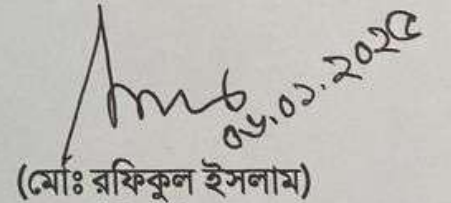 ০৮.০১.২০২৫
(মোঃ রফিকুল ইসলাম)